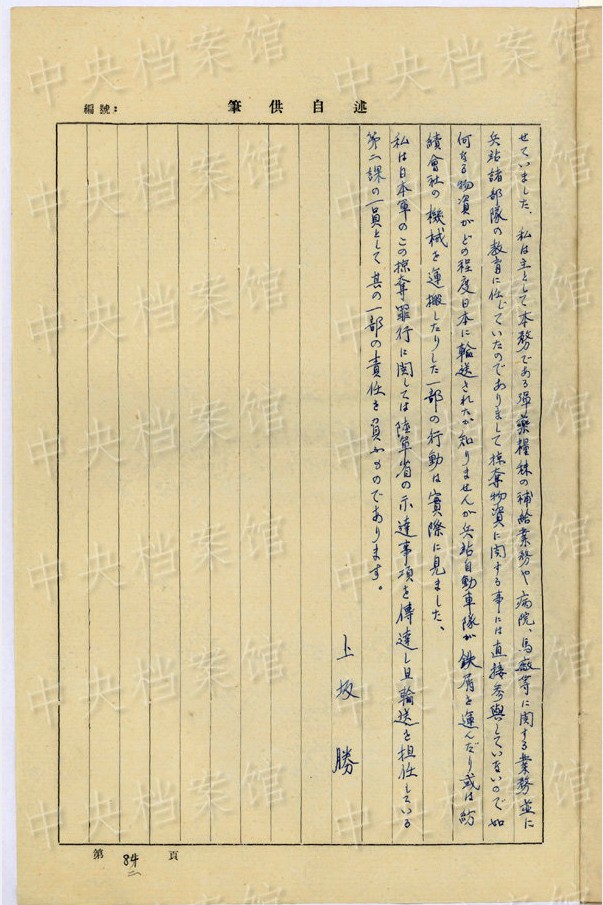 編號:
筆供自述
せていました、私は主として本務である彈藥糧秣の補給業務や病院、馬廠等に関する業務並に
兵站諸部隊の教育に任じていたのでありまして掠奪物資に関する事には直接参與していないので如
何なる物資がどの程度日本に輸送されたか知りませんが兵站自動車隊が鉄屑を運んだり或は紡
績會社の機械を運搬したりした一部の行動は實際に見ました、
私は日本軍のこの掠奪罪行に関しては陸軍省の示達事項を傳達し且輸送を担任している
第二課の一員として其の一部の責任を負ふものであります。
上坂 勝
第 84 二 頁
中央档案馆